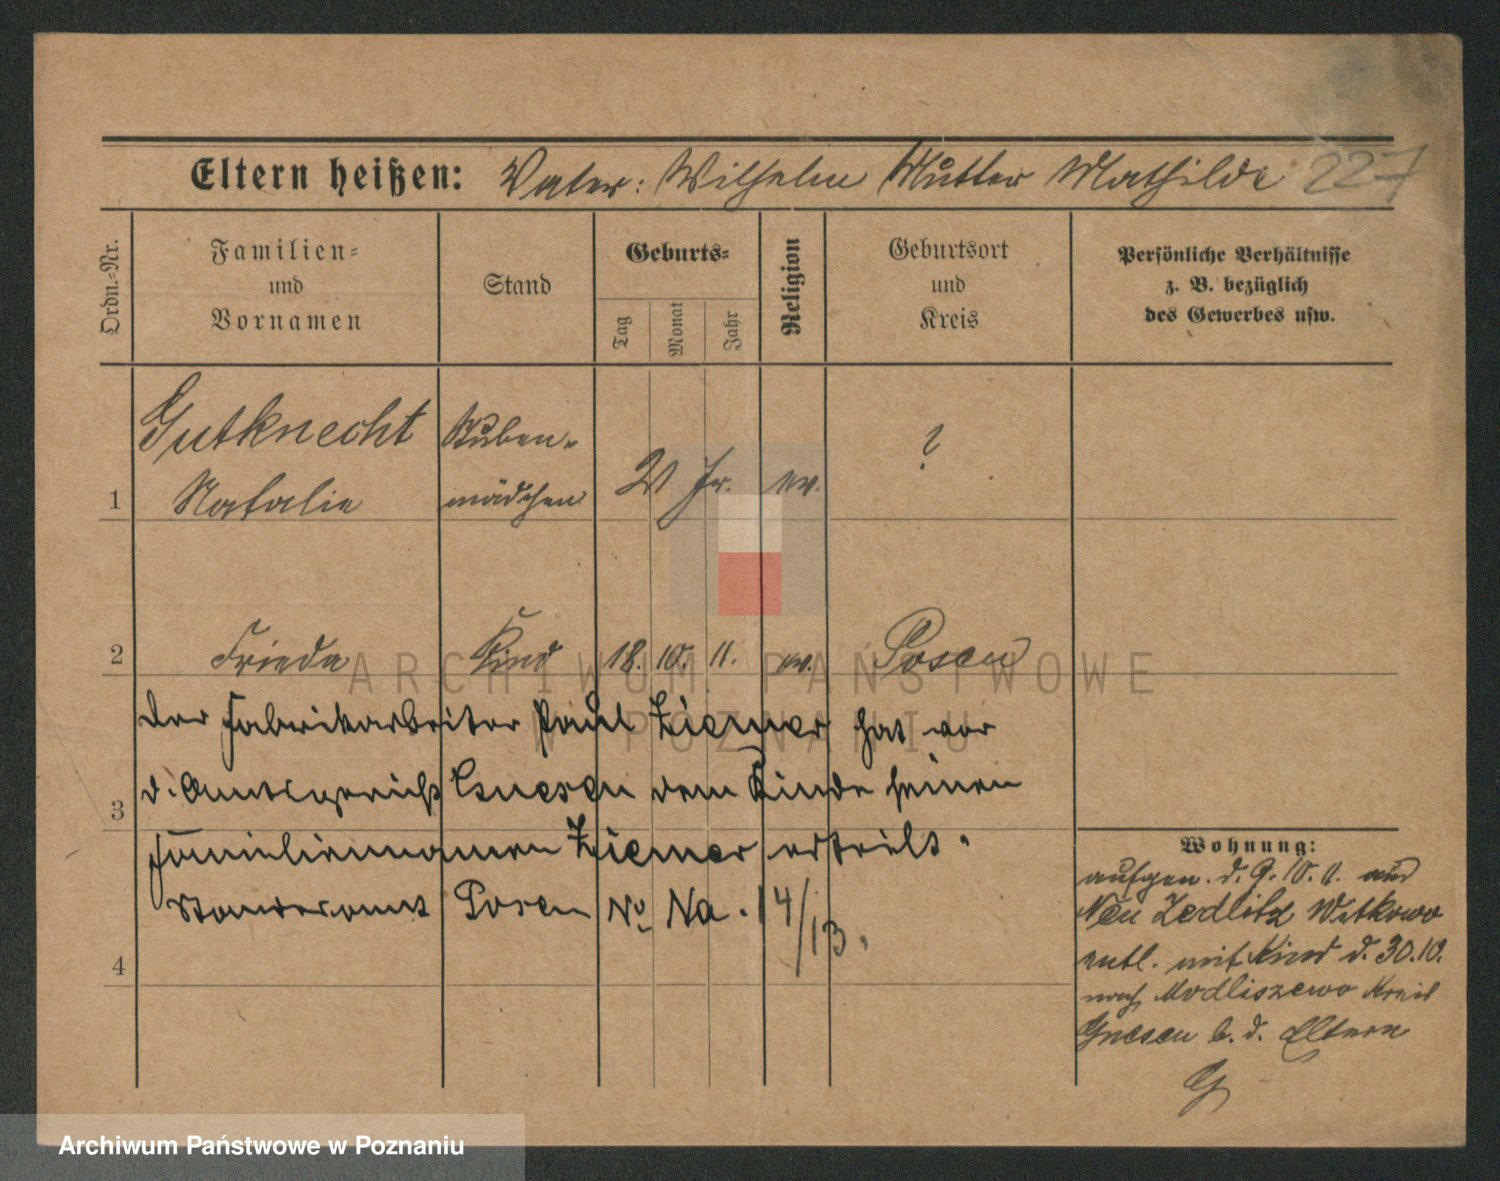 Eltern heißen: Vater: Wilhelm Mutter Mathilde 227
Ordn.=Nr.
Familien=
und
Vornamen
Stand
Geburts=
Tag
Monat
Jahr
Religion
Geburtsort
und
Kreis
Persönliche Verhältnisse
z. B. bezüglich
des Gewerbes usw.
Gutknecht Stuben-
1 Natalie mädchen 21 Jr. ev. ?
2 Frieda Kind 18. 10. 11. ev. Posen
der Fabrikarbeiter Paul Ziemer hat vor
d. Amtsgericht Gnesen dem Kinde seinen
3
Familiennamen Ziemer erteilt.
Standesamt Posen No Na. 14/13.
4
Wohnung:
aufgen. d. 9. 10. 11. aus
Neu Zedlitz Witkowo
entl. mit Kind d. 30.10.
nach Modliszewo Kreis
Gnesen b. d. Eltern
G
ARCHIWUM PAŃSTWOWE
W POZNANIU
Archiwum Państwowe w Poznaniu